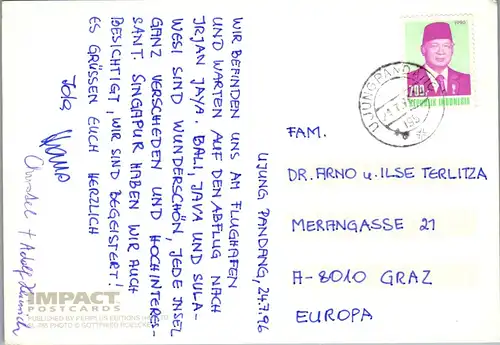 UJUNG PANDANG, 24.7.96
WIR BEFINDEN UNS AM FLUGHAFEN
UND WARTEN AUF DEN ABFLUG NACH
IRJAN JAYA. BALI, JAVA UND SULA-
WESI SIND WUNDERSCHÖN, JEDE INSEL
GANZ VERSCHIEDEN UND HOCHINTERES-
SANT. SINGAPUR HABEN WIR AUCH
BESICHTIGT, WIR SIND BEGEISTERT!
ES GRÜSSEN EUCH HERZLICH
Christl + Adolf
IMPACT
POSTCARDS
PUBLISHED BY PERIPLUS EDITIONS
PHOTO © GOTTFRIED
1990
700
REPUBLIK INDONESIA
UJUNGPANDANG
FAM.
DR. ARNO u. ILSE TERLITZA
MERANGASSE 21
A-8010 GRAZ
EUROPA